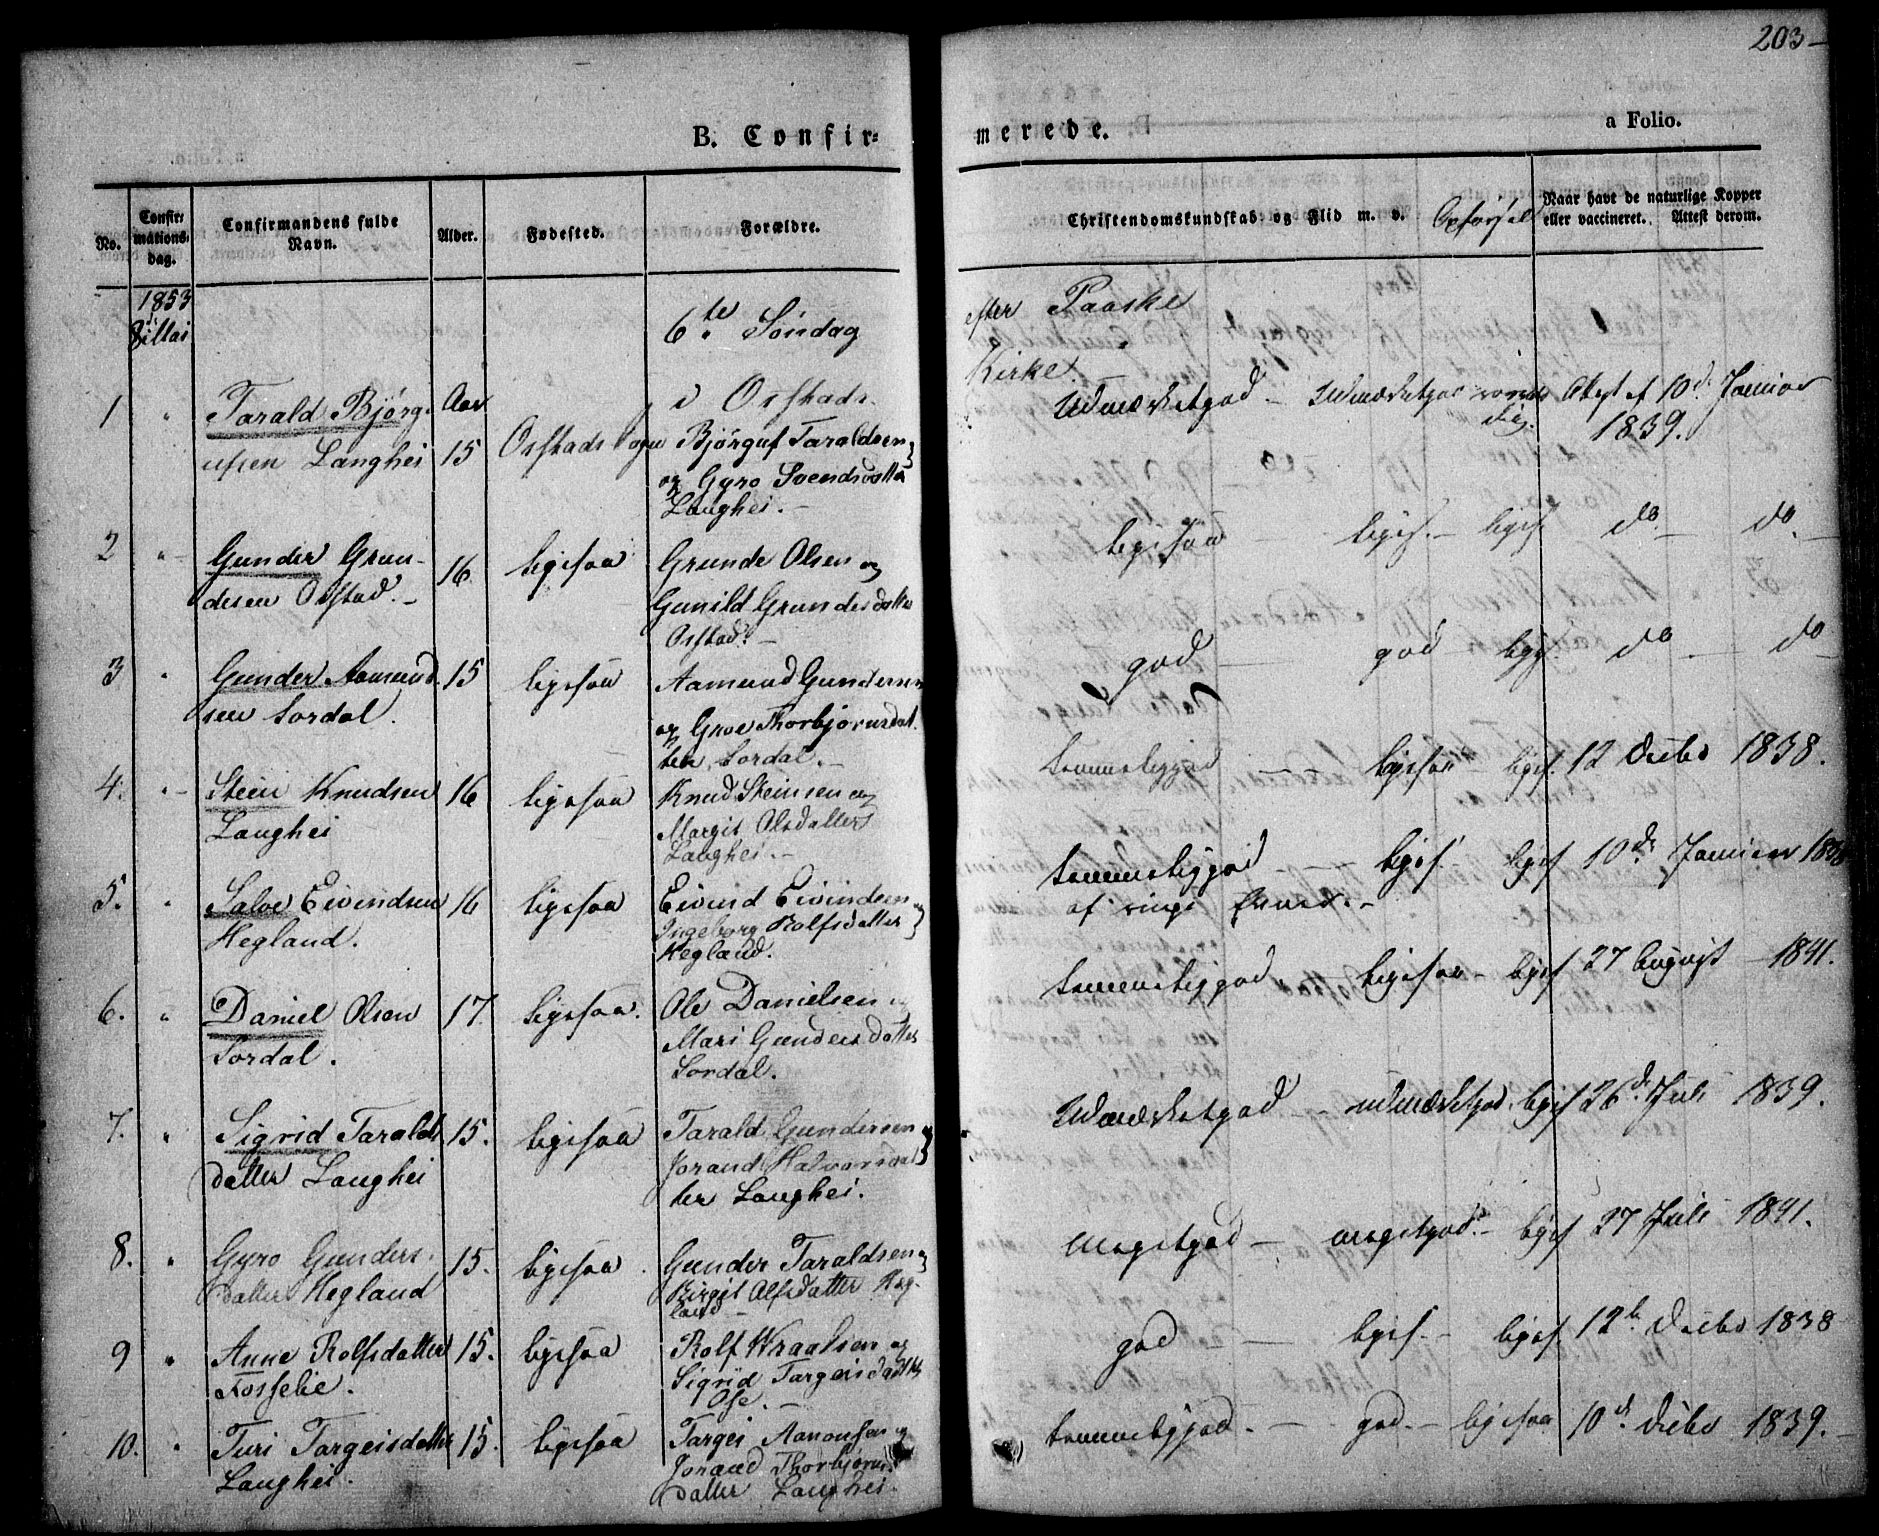 203-
B. Confir=
merede.
a Folio.
No.
Confir=
mations=
dag.
Confirmandens fulde
Navn.
Alder.
Fødested.
Forældre.
Christendomskundskab og Flid m. v.
Opførsel
Naar havt de naturlige Kopper
eller vaccineret. Attest derom.
1853
6te Søndag efter Paaske
i Kirke
1 " Tarald Bjørg-
ufsen Langhei
Aar
15
Bjørguf Taraldsen
og Gyro Svendsdatter
Langhei. -
Udmærketgod - Udmærketgod
10de Januar
1839.
2 " Gunder Grun-
desen
16 ligesaa Grunde Olsen og
Gunild Grundesdatter
ligesaa - liges. - liges. do - do -
3 " Gunder Aamund
sen Sordal.
15 ligesaa Aamund Gundersen
og Groe Thorbjørnsdat
ter Sordal. -
god - god - liges. do - do
4. " Stein Knudsen
Langhei
16 ligesaa Knud Steinsen og
Margit Olsdatter
Langhei. -
temmeliggod - ligesaa - liges. 12 Decbr 1838.
5. " Salve Eivindsen
Hegland.
16 ligesaa Eivind Eivindsen og
Ingeborg Rolfsdatter
Hegland.
temmeliggod - liges. - liges 10de Januar
af ringe
6. " Daniel Olsen
Sordal.
17. ligesaa. Ole Danielsen og
Mari Gundersdatter
Sordal.
temmeliggod ligesaa - liges 27 August - 1841.
7. " Sigrid Taralds
datter Langhei
15. ligesaa Tarald Gundersen og
Jorand Halvorsdat
ter Langhei.
Udmærketgod - udmærketgod liges 26de Juli 1839.
8. " Gyro Gunders-
datter Hegland
15. ligesaa. Gunder Taraldsen og
Birgit Alfsdatter Heg-
land -
Megetgod - megetgod. - liges 27 Juli 1841.
9 " Anne Rolfsdatter
Fosselie.
15. ligesaa Rolf Wraalsen og
Sigrid Targeisdatter
Ose. -
god - liges. - liges. 12te Decbr 1838
10. " Turi Targeisdatter
Langhei.
15. ligesaa Targei Aanonsen og
Jorand Thorbjørns
datter Langhei.
temmeliggod. - god. - ligesaa 10de Decbr 1839. -